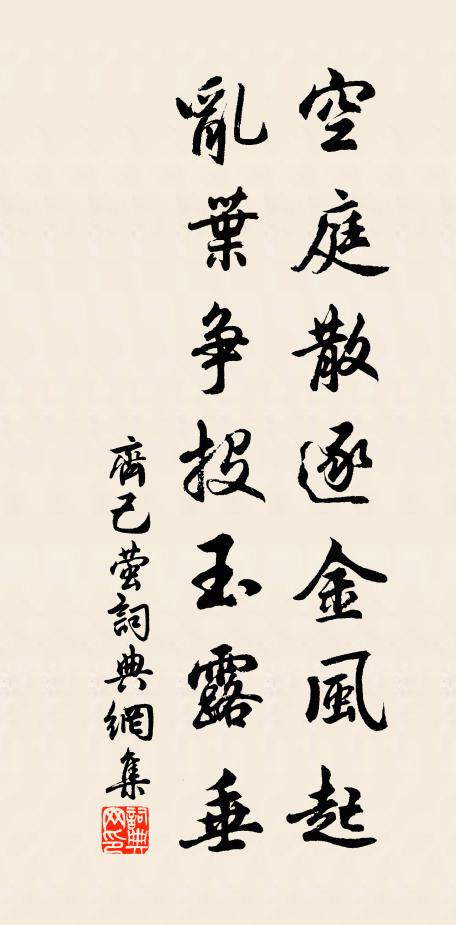 空庭散逐金風起
亂葉争投玉露垂
齊己萤詞典網集
詞典网印